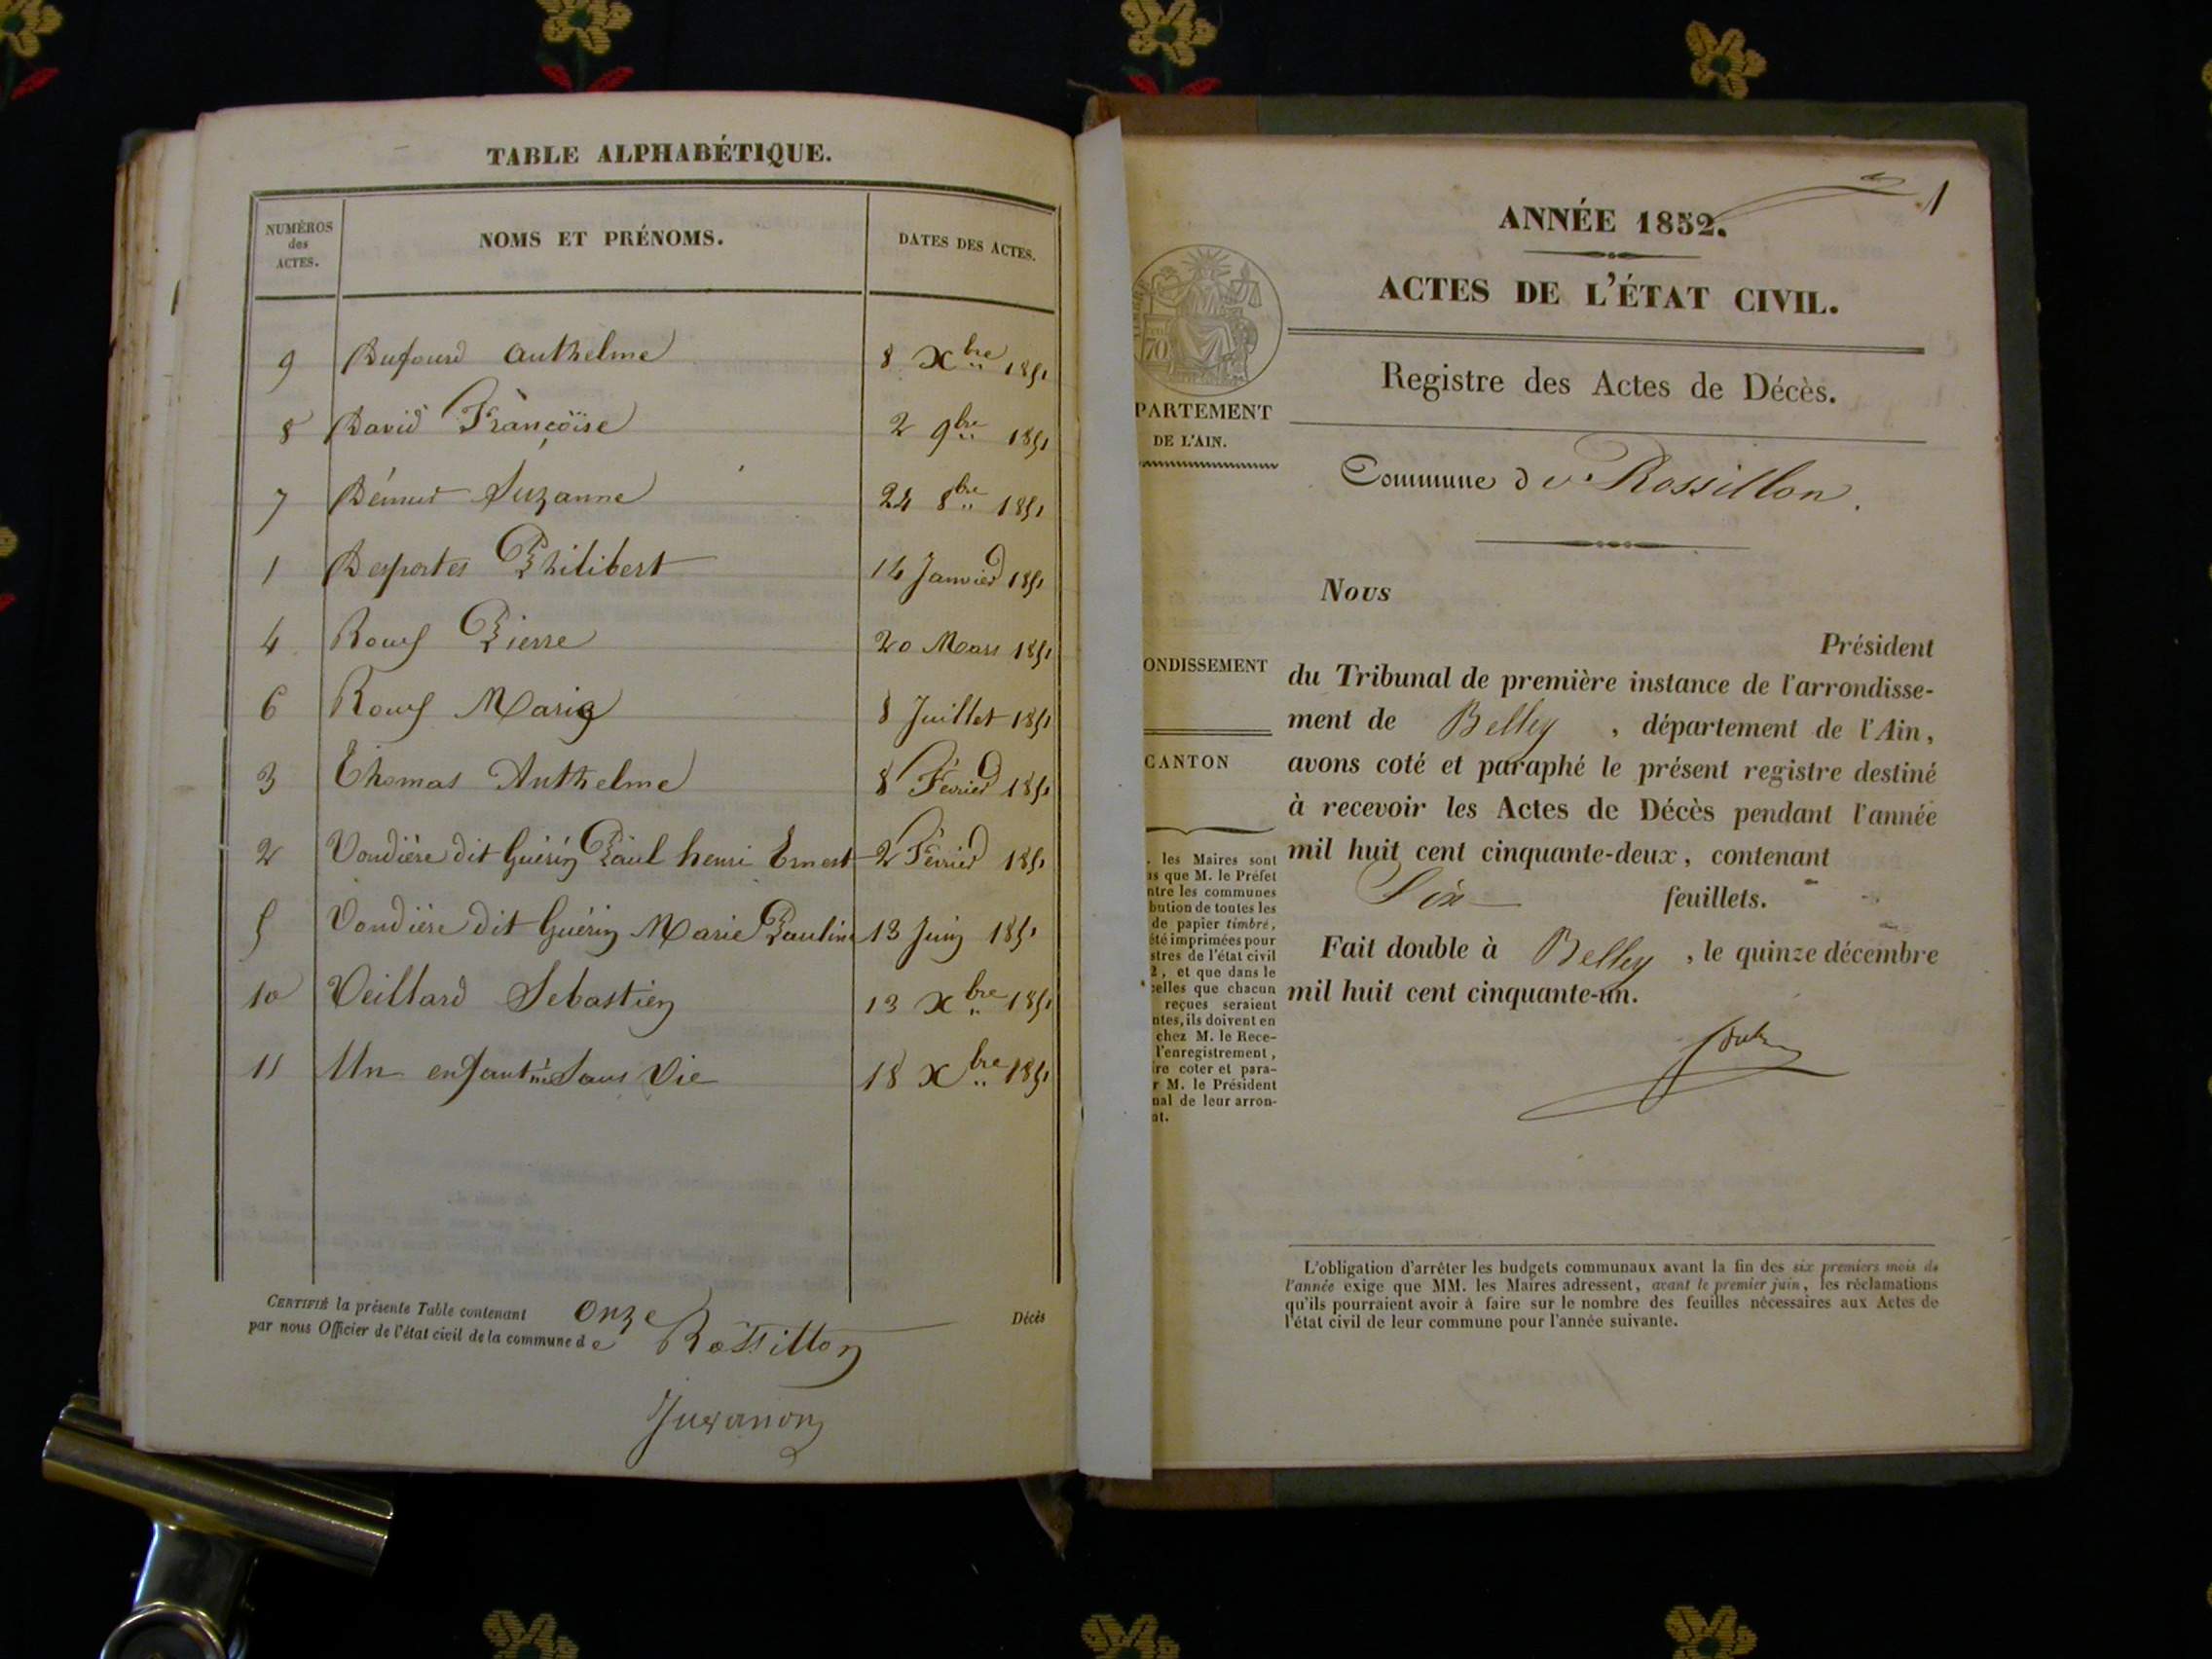 TABLE ALPHABÉTIQUE.
NUMÉROS des ACTES.
NOMS ET PRÉNOMS.
DATES DES ACTES.
9 Dufourd Anthelme 8 Xbre 1851
8 David Françoise 2 9bre 1851
7 Suzanne 24 8bre 1851
1 Desportes Philibert 14 Janvier 1851
4 Roux Pierre 20 Mars 1851
6 Roux Marie 8 Juillet 1851
3 Thomas Anthelme 8 Février 1851
2 Vondière dit Guérin Paul henri Ernest 2 Février 1851
5 Vondière dit Guérin Marie Pauline 13 Juin 1851
10 Veillard Sebastien 13 Xbre 1851
11 Un enfant m Sans Vie 18 Xbre 1851
CERTIFIÉ la présente Table contenant onze Décès
par nous Officier de l'état civil de la commune de Rossillon
Juvanon
1
ANNÉE 1852.
ACTES DE L'ÉTAT CIVIL.
Registre des Actes de Décès.
70
PARTEMENT
DE L'AIN.
Commune de Rossillon.
Nous
Président
ONDISSEMENT
du Tribunal de première instance de l'arrondisse-
ment de Belley, département de l'Ain,
CANTON
avons coté et paraphé le présent registre destiné
à recevoir les Actes de Décès pendant l'année
mil huit cent cinquante-deux, contenant
Six feuillets.
Fait double à Belley, le quinze décembre
mil huit cent cinquante-un.
. les Maires sont
us que M. le Préfet
ntre les communes
bution de toutes les
de papier timbré,
été imprimées pour
stres de l'état civil
2, et que dans le
celles que chacun
reçues seraient
ntes, ils doivent en
chez M. le Rece-
l'enregistrement,
ire coter et para-
r M. le Président
nal de leur arron-
nt.
L'obligation d'arrêter les budgets communaux avant la fin des six premiers mois de
l'année exige que MM. les Maires adressent, avant le premier juin, les réclamations
qu'ils pourraient avoir à faire sur le nombre des feuilles nécessaires aux Actes de
l'état civil de leur commune pour l'année suivante.